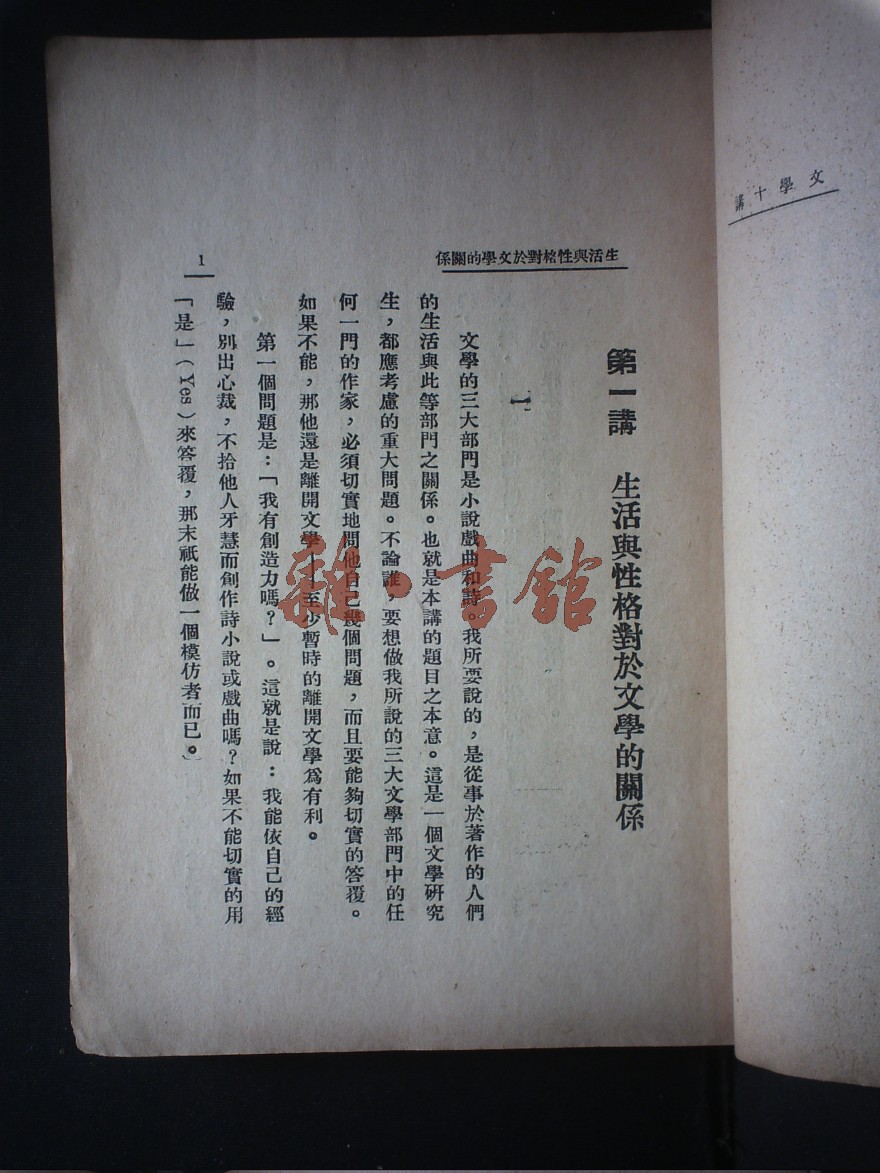 文學十講
生活與性格對於文學的關係
第一講　生活與性格對於文學的關係
【一】
文學的三大部門是小說戲曲和詩。我所要說的，是從事於著作的人們
的生活與此等部門之關係。也就是本講的題目之本意。這是一個文學研究
生，都應考慮的重大問題。不論誰，要想做我所說的三大文學部門中的任
何一門的作家，必須切實地問他自己幾個問題，而且要能夠切實的答覆。
如果不能，那他還是離開文學——至少暫時的離開文學爲有利。
第一個問題是：「我有創造力嗎？」。這就是說：我能依自己的經
驗，別出心裁，不拾他人牙慧而創作詩小說或戲曲嗎？如果不能切實的用
「是」（Yes）來答覆，那末祇能做一個模仿者而已。
1
雜·書館